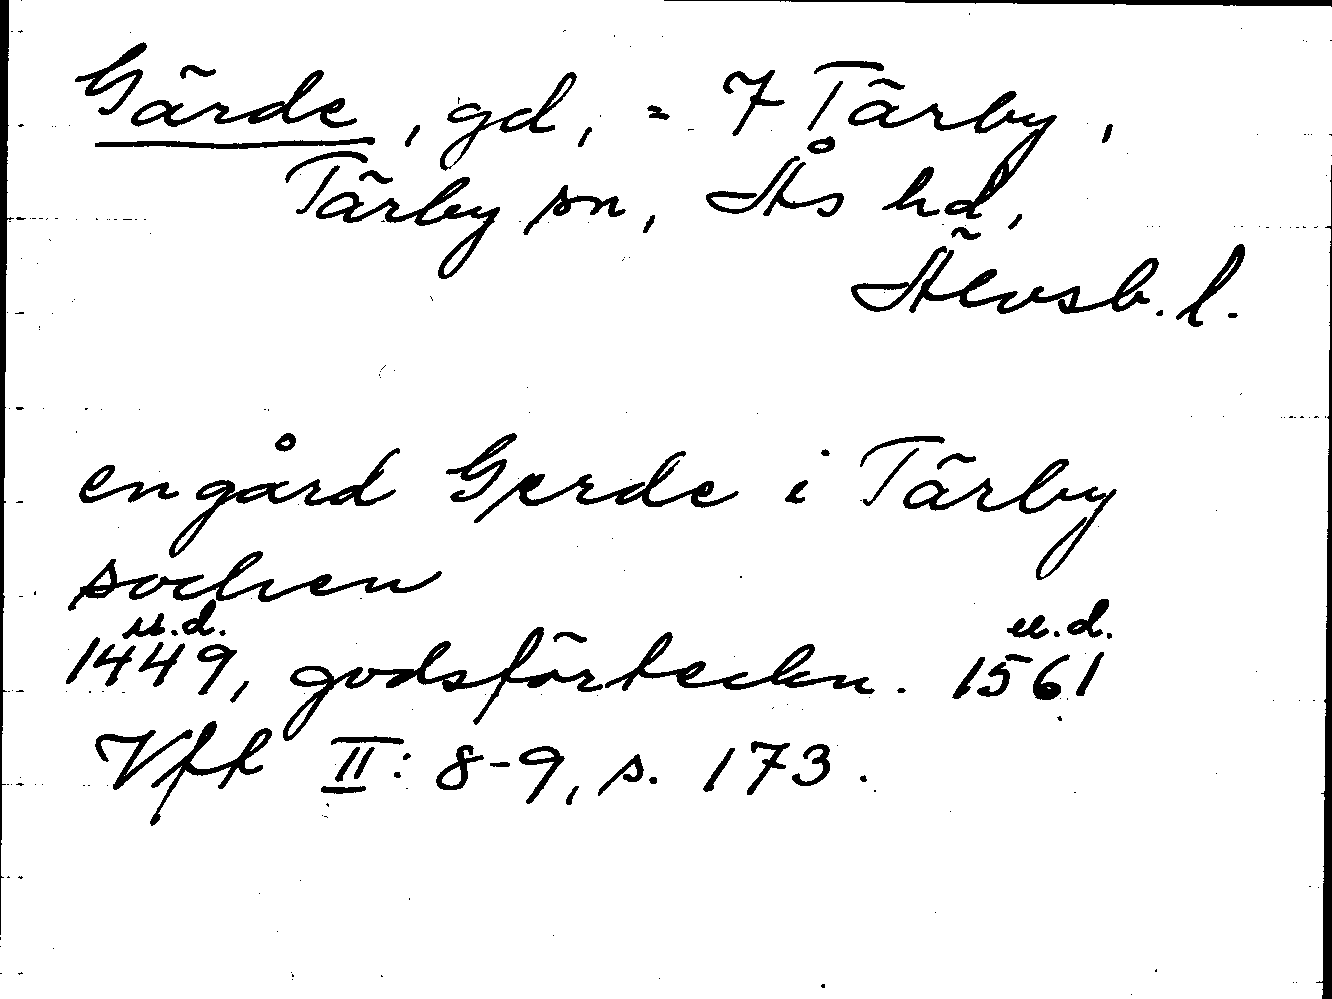 Gärde, gd, = 7 Tärby,
Tärby sn, Ås hd,
Älvsb. l.
en gård Gerde i Tärby
sochen
u.d. u.d.
1449, godsförteckn. 1561
Vfr II: 8-9, s. 173.